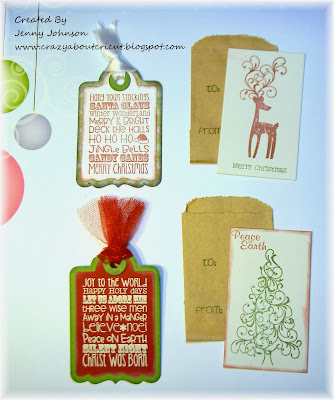 Created By
Jenny Johnson
www.crazyaboutcricut.blogspot.com
Hang your stockings
SANTA CLAUS
Winter Wonderland
MERRY & BRIGHT
DECK THE HALLS
HO HO HO
JINGLE BELLS
CANDY CANES
MERRY CHRISTMAS
to:
from:
Merry Christmas
JOY TO THE WORLD
HAPPY HOLY DAYS
LET US ADORE HIM
three wise men
AWAY IN A MANGER
believe noel
Peace on Earth
SILENT NIGHT
CHRIST WAS BORN
to:
from:
Peace
on
Earth